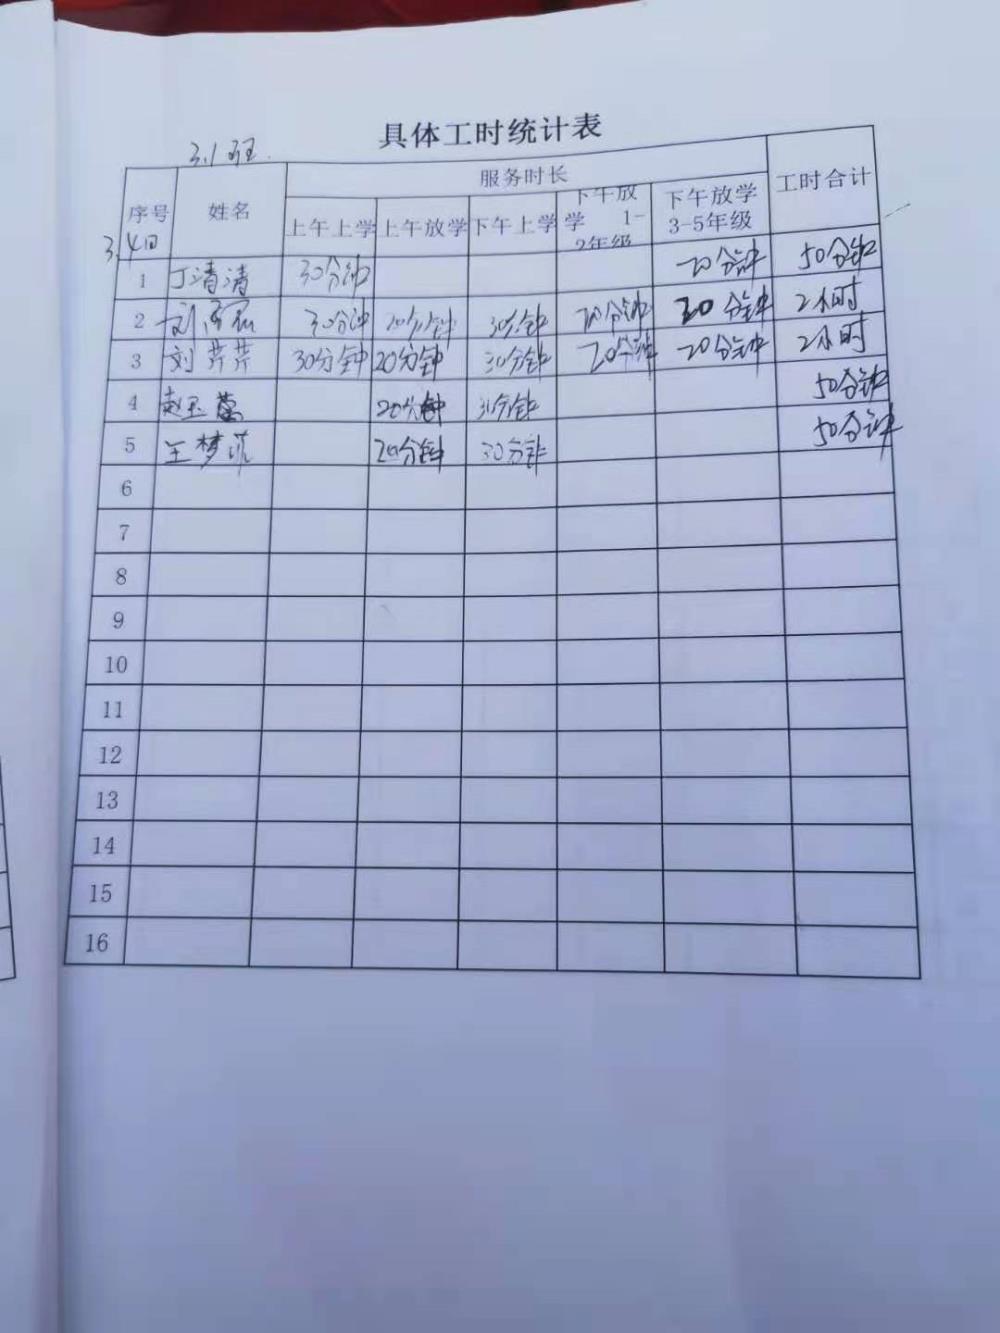 具体工时统计表
3.1班.
序号 姓名 服务时长 工时合计
上午上学 上午放学 下午上学 下午放学 1-2年级 下午放学 3-5年级
3.4日
1 丁清清 30分钟 20分钟 50分钟
2 刘 30分钟 20分钟 30分钟 20分钟 20分钟 2小时
3 刘芹芹 30分钟 20分钟 30分钟 20分钟 20分钟 2小时
4 赵玉 20分钟 30分钟 50分钟
5 王梦菲 20分钟 30分钟 50分钟
6
7
8
9
10
11
12
13
14
15
16